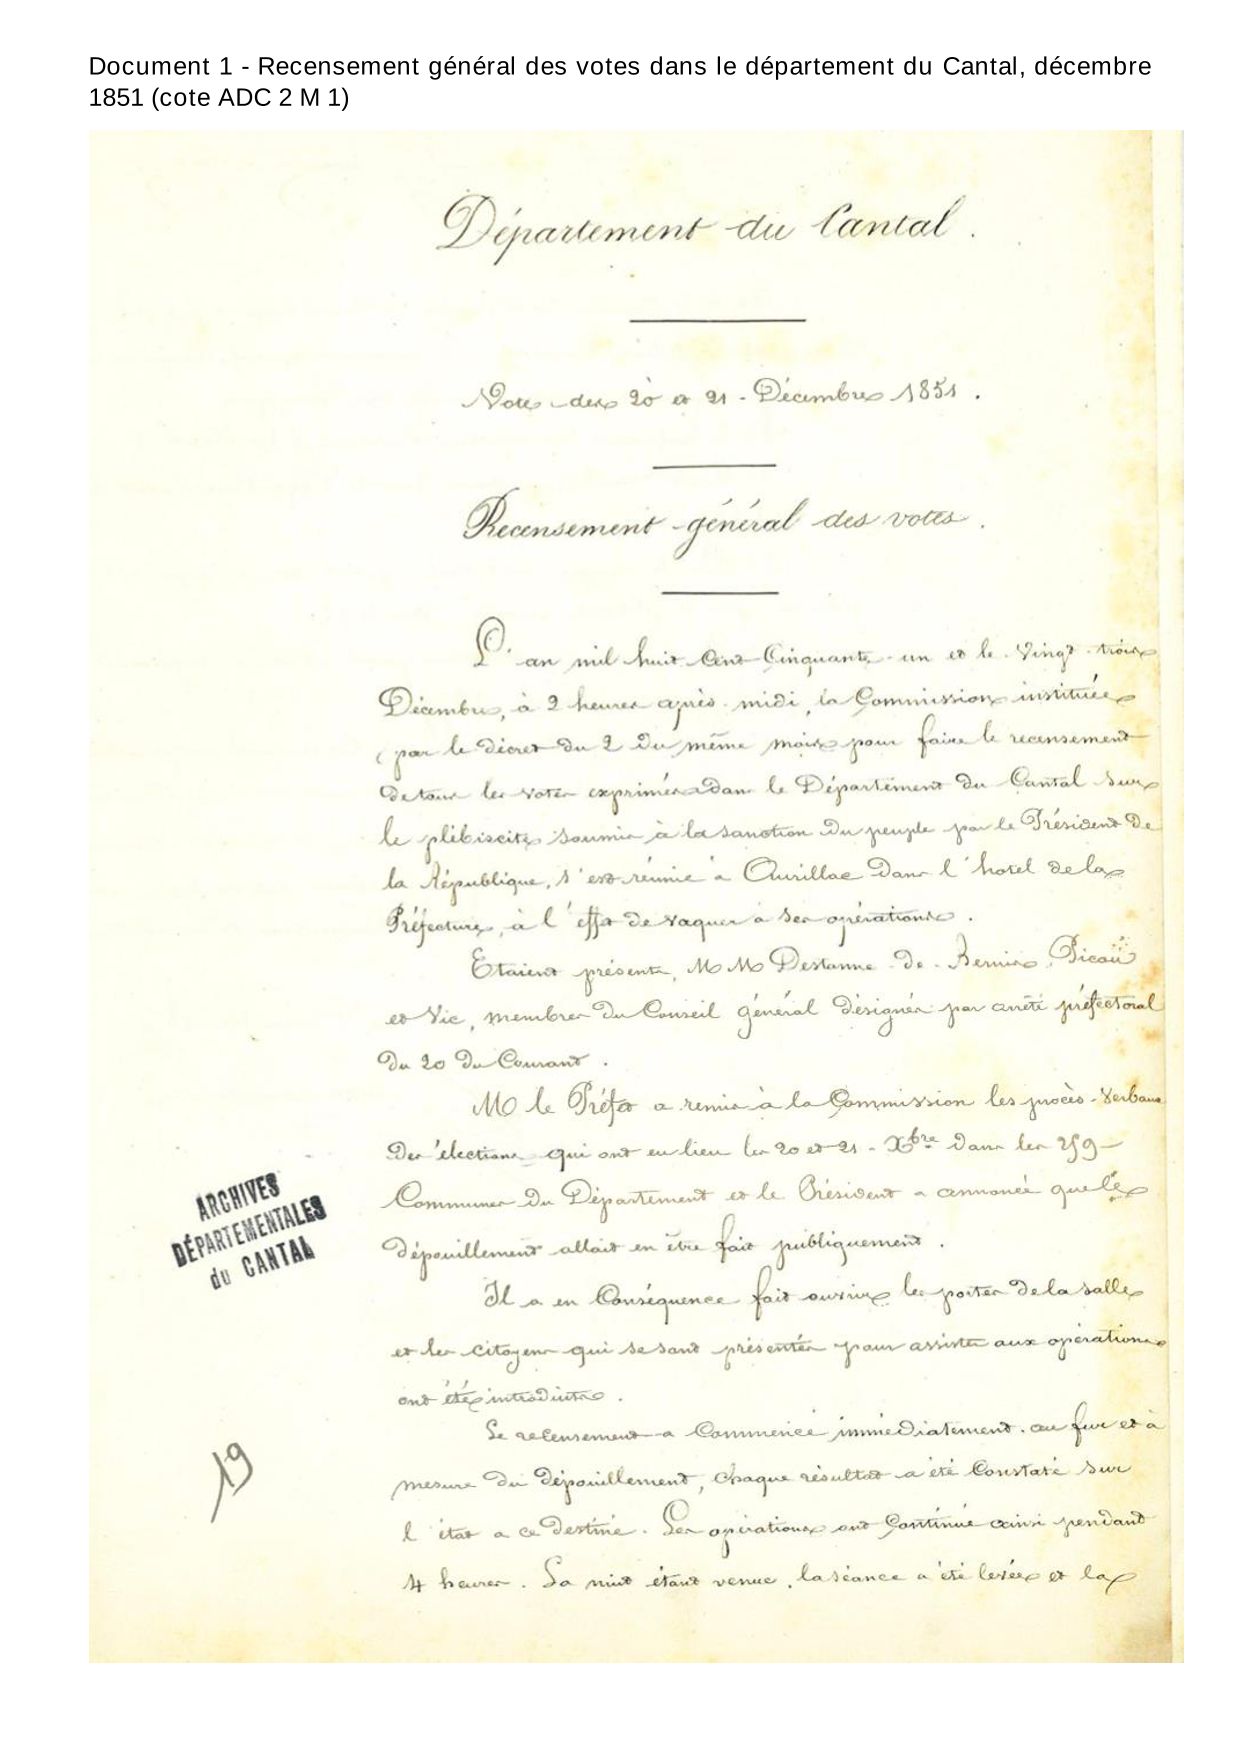 Document 1 - Recensement général des votes dans le département du Cantal, décembre
1851 (cote ADC 2 M 1)
Département du Cantal.
Votes des 20 et 21 - Décembre 1851.
Recensement général des votes.
L'an mil huit Cent Cinquante un et le Vingt trois
Décembre, à 2 heures après midi, la Commission instituée
par le décret du 2 du même mois pour faire le recensement
de tous les votes exprimés dans le Département du Cantal sur
le plébiscite soumis à la sanction du peuple par le Président de
la République, s'est réunie à Aurillac dans l'hotel de la
Préfecture, à l'effet de vaquer à ses opérations.
Etaient présents, MM Destanne de Bernis, Picou
et Vic, membres du Conseil général désignés par arrêté préfectoral
du 20 du Courant.
M le Préfet a remis à la Commission les procès-Verbaux
des élections qui ont eu lieu les 20 et 21 - Xbre dans les 259
Communes du Département et le Président a annoncé que le
dépouillement allait en être fait publiquement.
Il a en Conséquence fait ouvrir les portes de la salle
et les citoyens qui se sont présentés pour assister aux opérations
ont été introduits.
Le recensement a Commencé immédiatement. au fur et à
mesure du dépouillement, chaque résultat a été Constaté sur
l'état a ce destiné. Les opérations ont Continué ainsi pendant
4 heures. La nuit étant venue, la séance a été levée et la
ARCHIVES
DÉPARTEMENTALES
du CANTAL
19